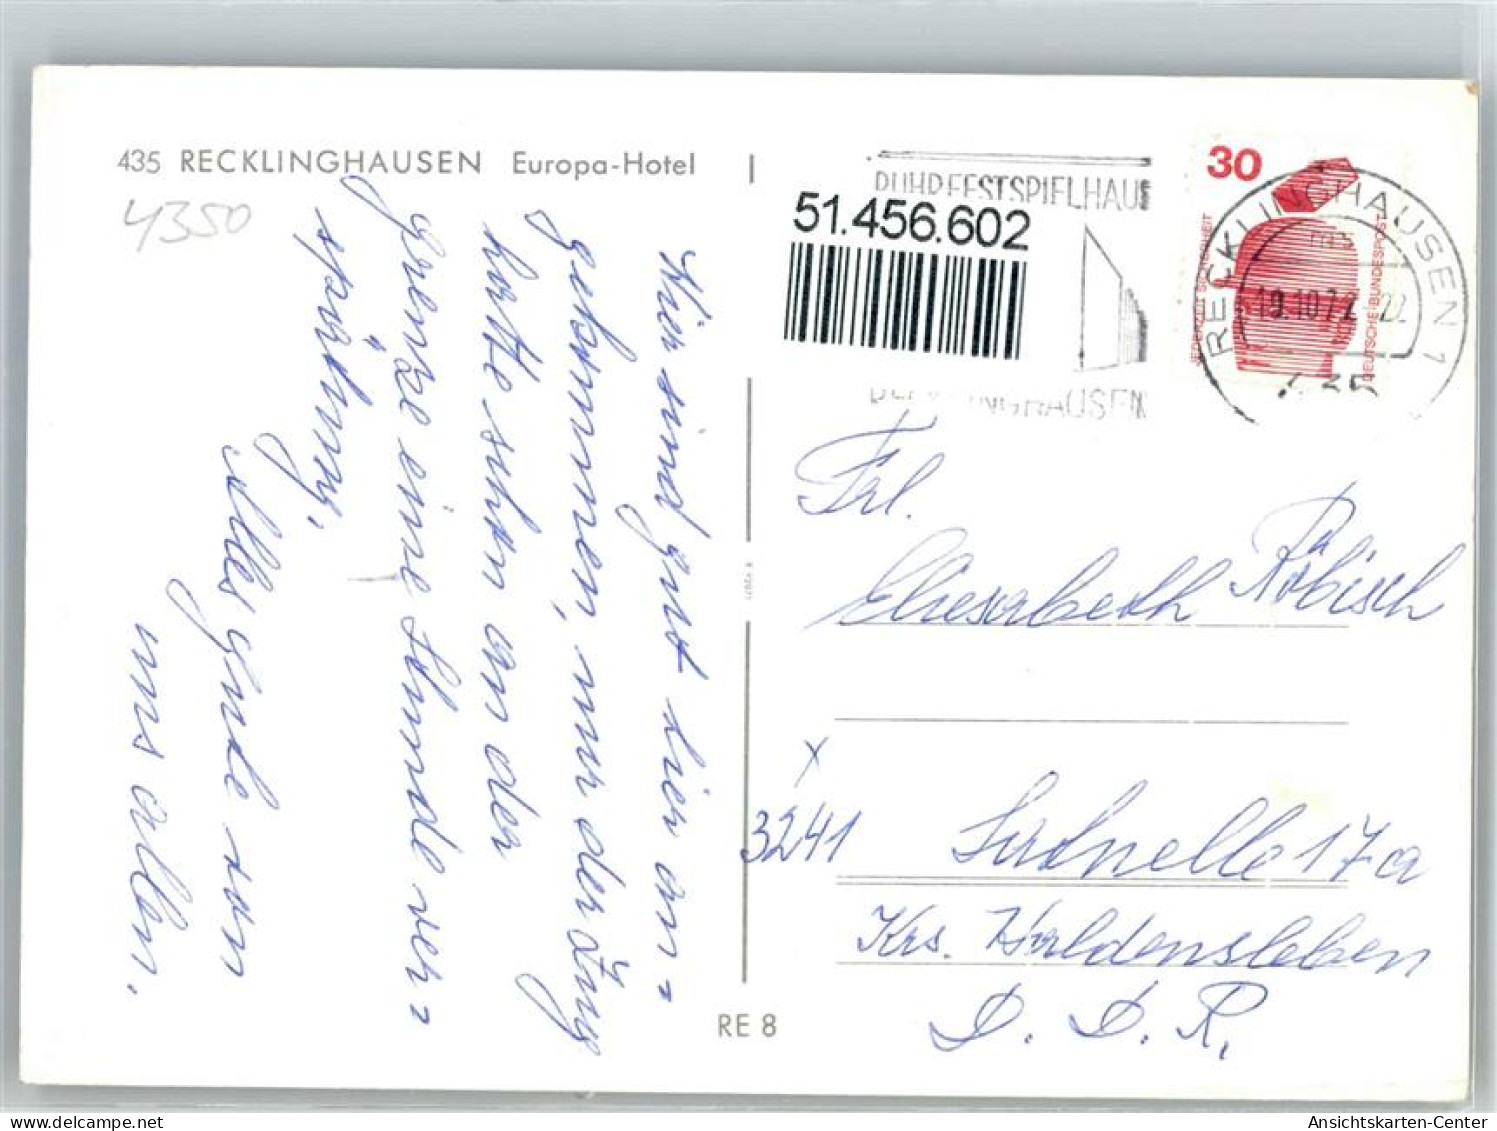 435 RECKLINGHAUSEN Europa-Hotel
4350
Wir sind gut hier an=
gekommen, nur der Zug
hatte schon an der
Grenze eine Stunde ver=
spätung.
Alles gute von
uns allen.
RE 8
RUHRFESTSPIELHAUS
51.456.602
RECKLINGHAUSEN
30
JEDERZEIT SICHERHEIT
DEUTSCHE BUNDESPOST
RECKLINGHAUSEN 1
19.10.72
435
Frl.
Eliesabeth Röbisch
X
3241
17a
Krs. Haldensleben
D. D. R.
Ansichtskarten-Center